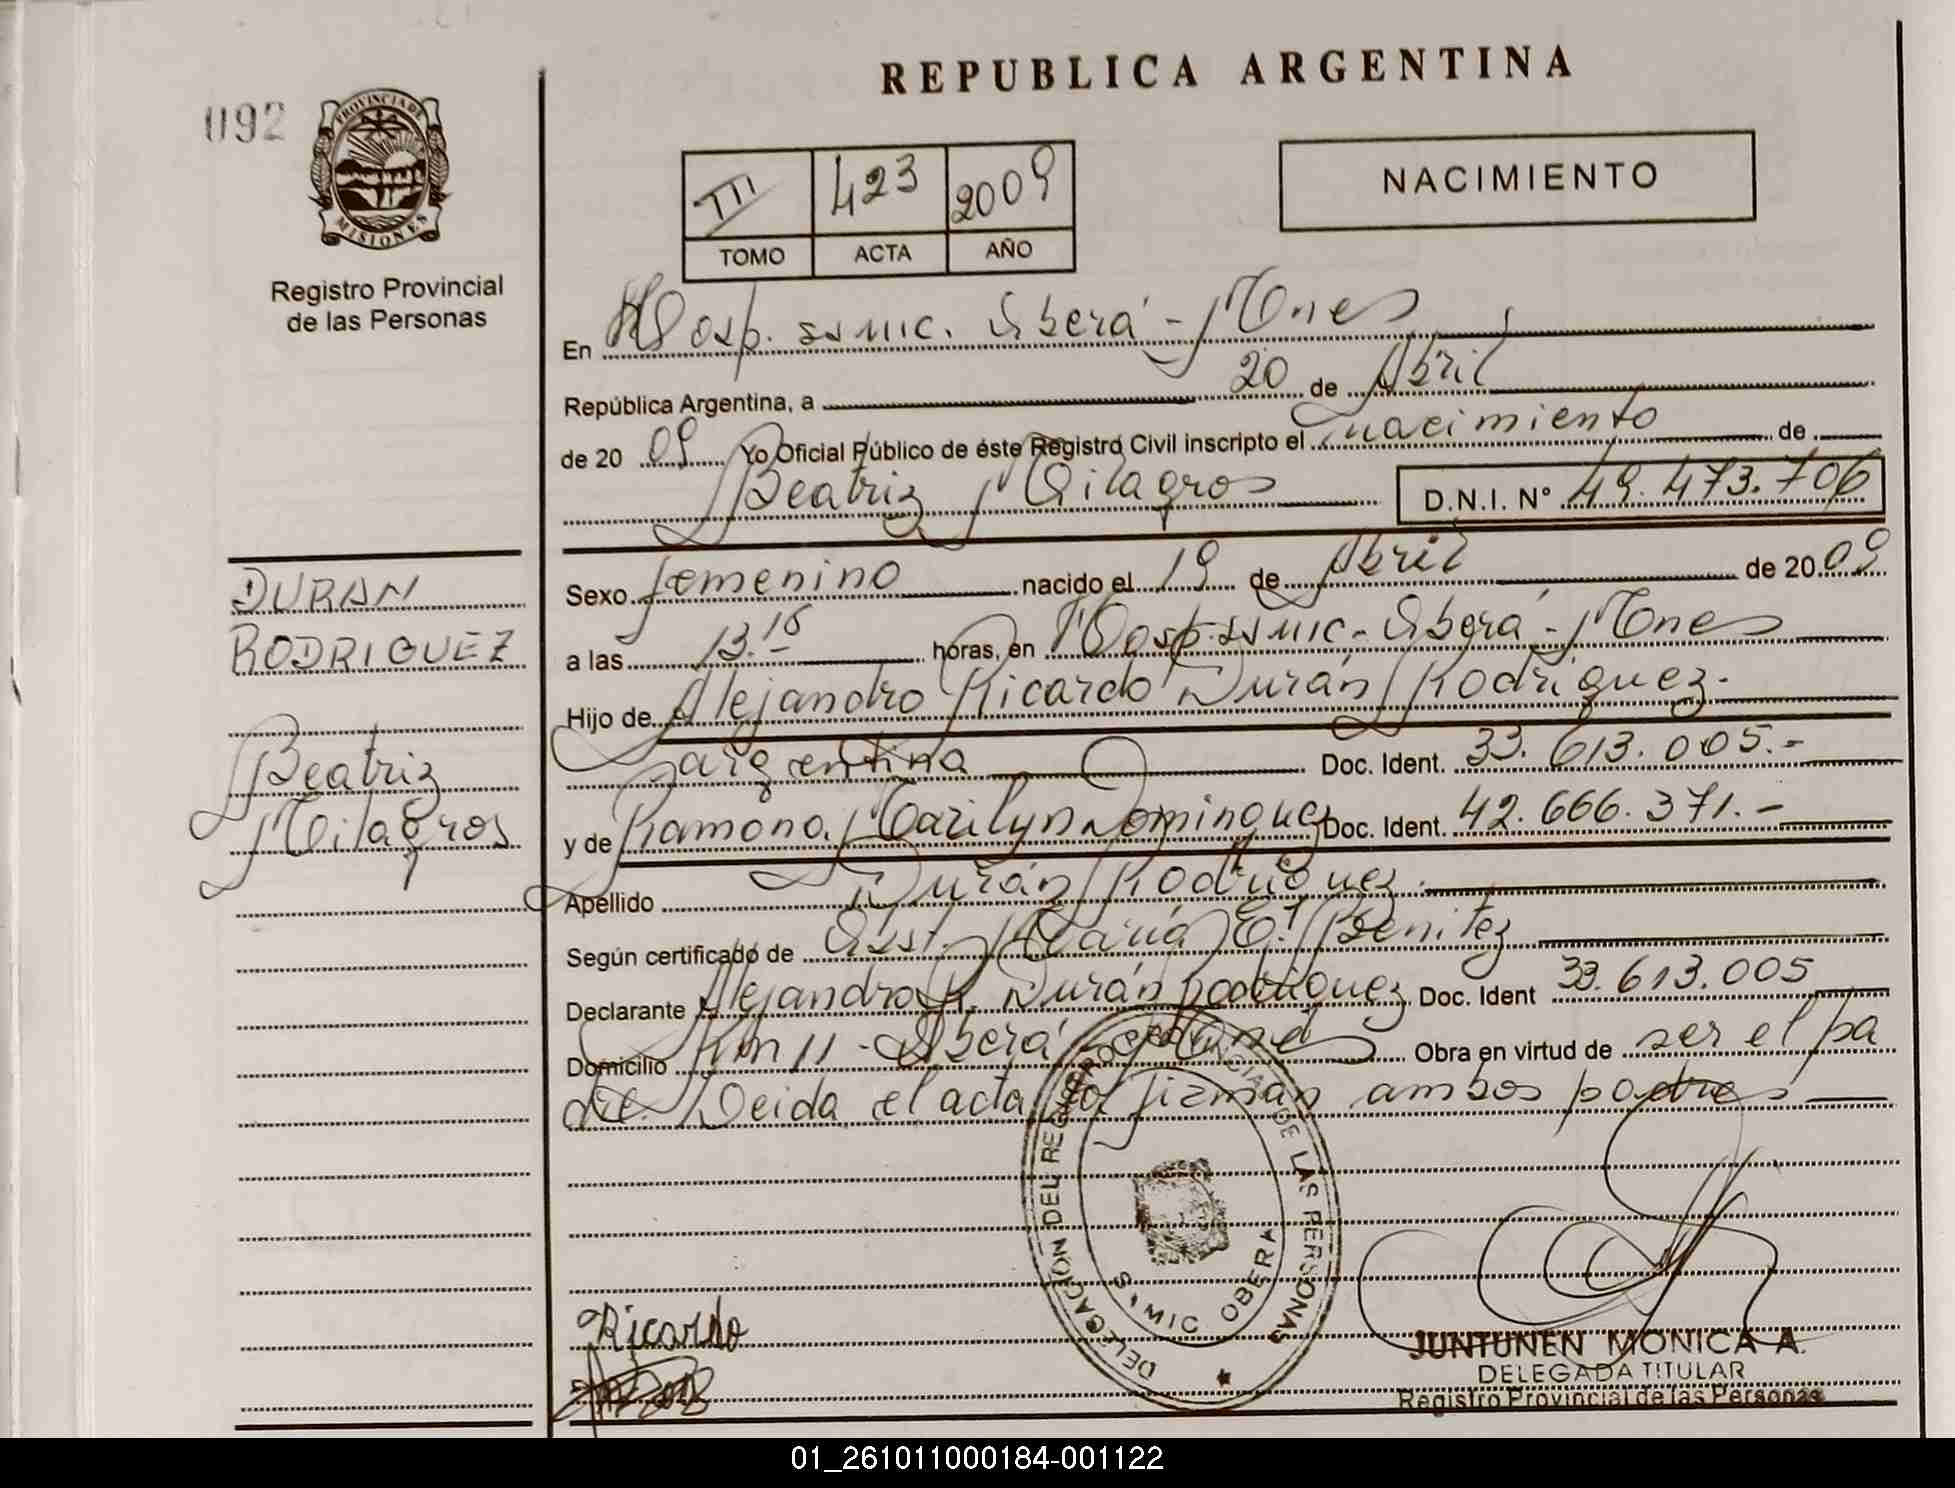 REPUBLICA ARGENTINA
092
PROVINCIA DE
MISIONES
Registro Provincial
de las Personas
TII 423 2009
TOMO ACTA AÑO
NACIMIENTO
En Hosp. ss mic. Oberá - Mnes
República Argentina, a 20 de Abril
de 20 09 Yo Oficial Público de éste Registro Civil inscripto el nacimiento de
Beatriz Milagros D.N.I. Nº 49.473.706
DURAN
RODRIGUEZ
Beatriz
Milagros
Sexo femenino nacido el 19 de Abril de 20 09
a las 13.15 horas, en Hosp. ss mic - Oberá - Mnes
Hijo de Alejandro Ricardo Durán Rodriguez.
argentina Doc. Ident. 33.613.005.-
y de Ramona Marilyn Dominguez Doc. Ident. 42.666.371.-
Apellido Durán Rodriguez.
Según certificado de Obst. María E. Benitez
Declarante Alejandro R. Durán Rodriguez Doc. Ident 33.613.005
Domicilio Km 11 - Oberá Mnes Obra en virtud de ser el pa
dre. Leida el acta la firman ambos padres
DELEGACION DEL REGISTRO PROVINCIAL DE LAS PERSONAS
S.MIC OBERA
Ricardo
JUNTUNEN MONICA A.
DELEGADA TITULAR
Registro Provincial de las Personas
01_261011000184-001122